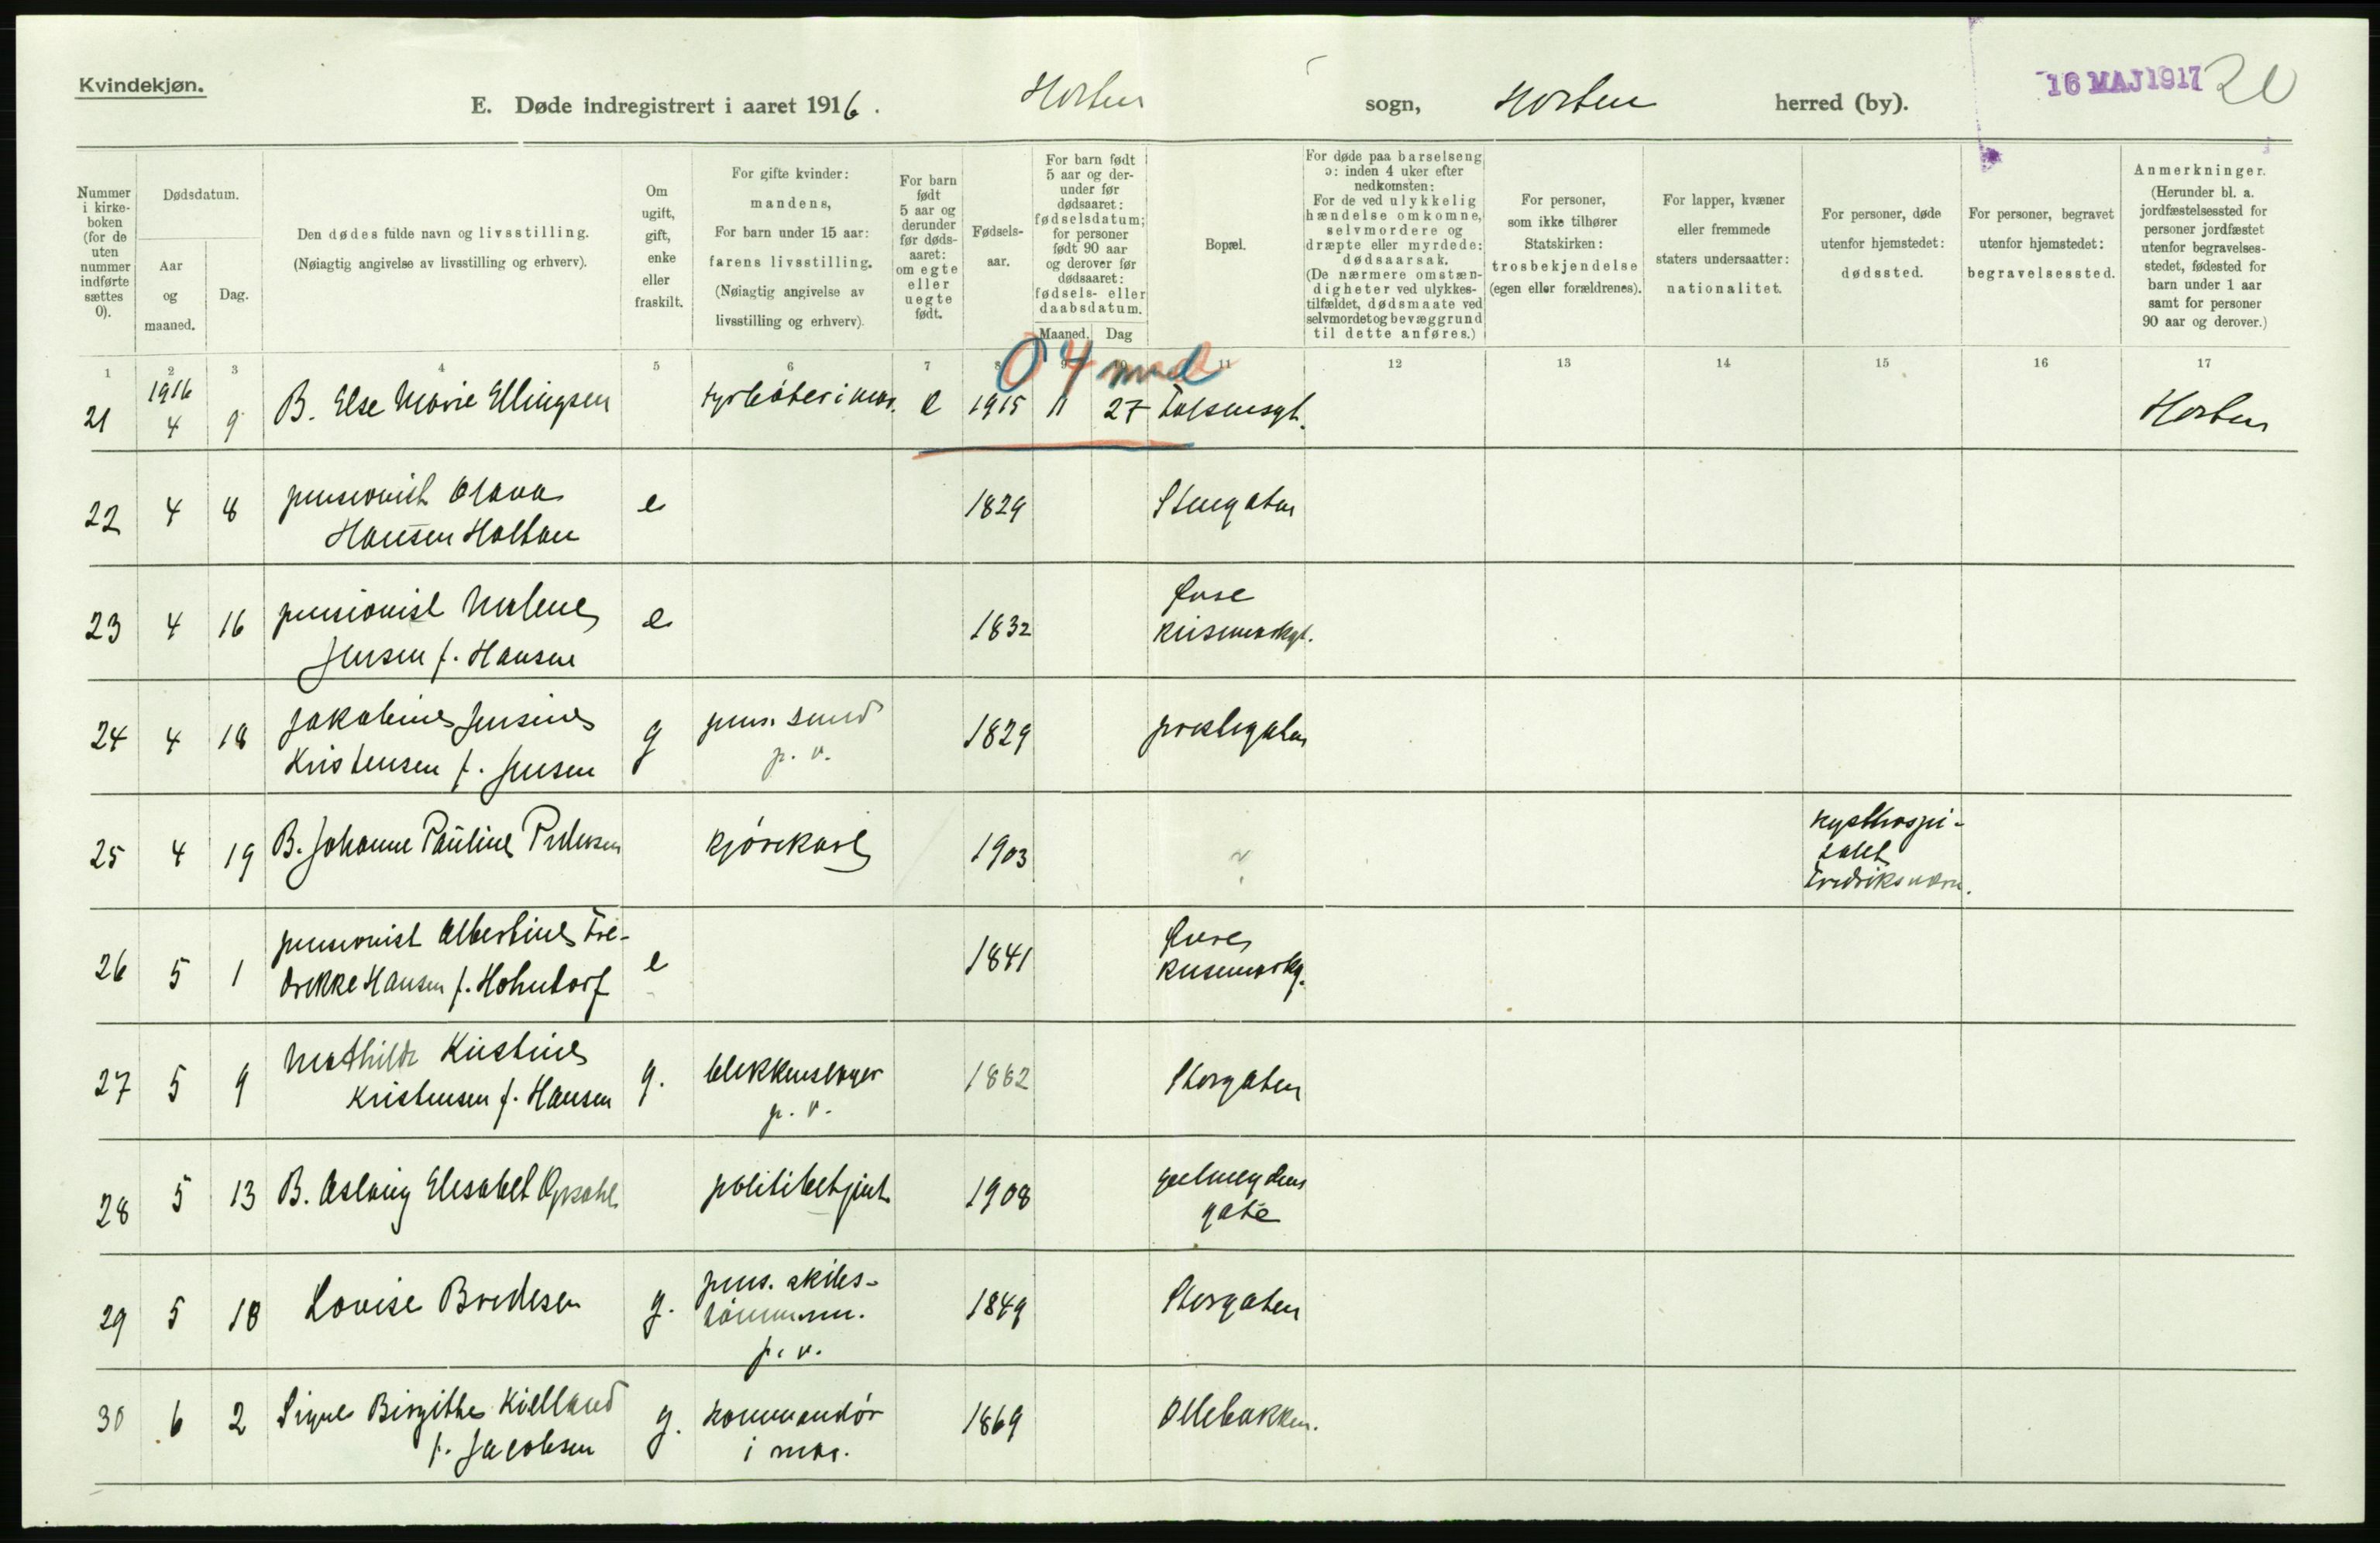 Kvindekjøn.
E. Døde indregistrert i aaret 1916. Horten sogn, Horten herred (by).
16 MAJ 1917
20
Nummer i kirke-boken (for de uten nummer indførte sættes 0).
Dødsdatum.
Aar og maaned.
Dag.
Den dødes fulde navn og livsstilling.
(Nøiagtig angivelse av livsstilling og erhverv).
Om ugift, gift, enke eller fraskilt.
For gifte kvinder: mandens,
For barn under 15 aar: farens livsstilling.
(Nøiagtig angivelse av livsstilling og erhverv).
For barn født 5 aar og derunder før døds-aaret: om egte eller uegte født.
Fødsels-aar.
For barn født 5 aar og der-under før dødsaaret: fødselsdatum; for personer født 90 aar og derover før dødsaaret: fødsels- eller daabsdatum.
Maaned. Dag
Bopæl.
For døde paa barselseng ɔ: inden 4 uker efter nedkomsten:
For de ved ulykkelig hændelse omkomne, selvmordere og dræpte eller myrdede: dødsaarsak.
(De nærmere omstæn-digheter ved ulykkes-tilfældet, dødsmaate ved selvmordet og bevæggrund til dette anføres.)
For personer, som ikke tilhører Statskirken: trosbekjendelse (egen eller forældrenes).
For lapper, kvæner eller fremmede staters undersaatter: nationalitet.
For personer, døde utenfor hjemstedet: dødssted.
For personer, begravet utenfor hjemstedet: begravelsessted.
Anmerkninger.
(Herunder bl. a. jordfæstelsessted for personer jordfæstet utenfor begravelses-stedet, fødested for barn under 1 aar samt for personer 90 aar og derover.)
1 2 3 4 5 6 7 8 9 10 11 12 13 14 15 16 17
0 4 mnd
1916
21 4 9 B. Else Marie Ellingsen fyrbøter i mar. e 1915 11 27 Falsensgt. Horten
22 4 8 pensionist Olava e 1829 Stengaten
Hansen Holtan
23 4 16 pensionist Malene e 1832 øvre
Jensen f. Hansen Keisemarkgt.
24 4 18 Jakobine Jensine g pens. smed 1829 prestegaten
Kristensen f. Jensen p. v.
25 4 19 B. Johanne Pauline Pedersen kjørekarl 1903 kysthospi-
talet
Fredriksværn.
26 5 1 pensionist Albertine Fre- e 1841 øvre
drikke Hansen f. Hohntorf Keisemarkg.
27 5 9 Mathilde Kristine g. blikkenslager 1862 Storgaten
Kristensen f. Hansen p. v.
28 5 13 B. Aslaug Elisabet Opsahl politibetjent 1908
gate
29 5 18 Lovise Bredesen g. pens. skibs- 1849 Storgaten
tømmerm.
p. v.
30 6 2 Signe Birgithe Kielland g. kommandør 1869 Ollebakken.
f. Jacobsen i mar.